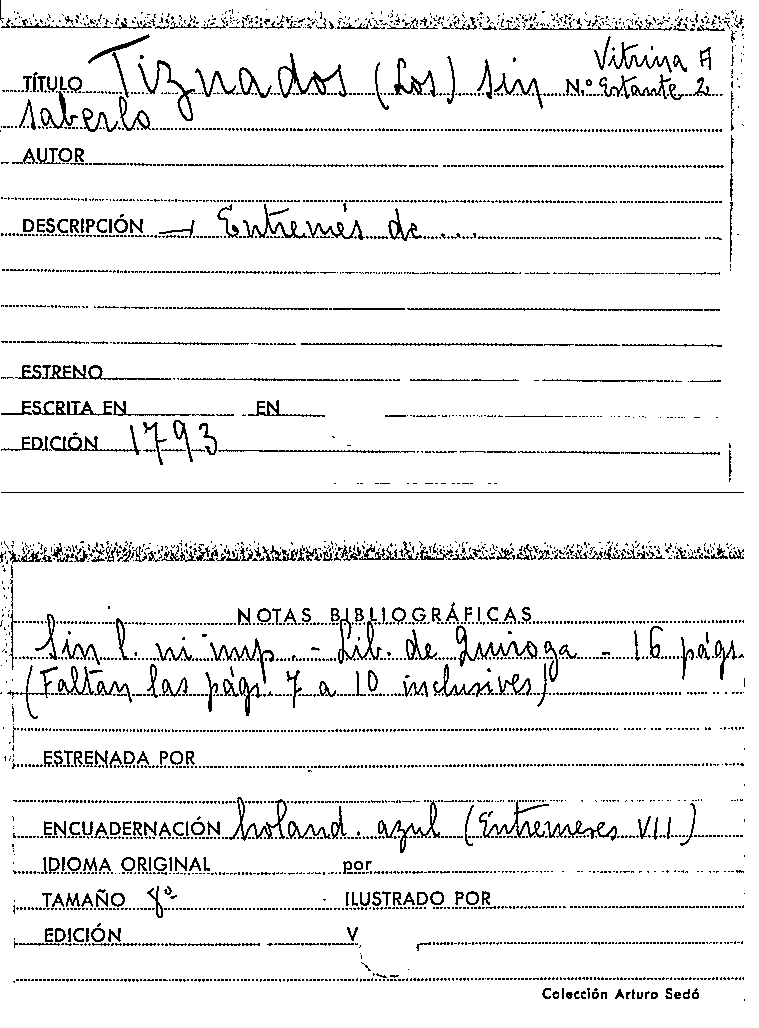 Vitrina A
TÍTULO Tiznados (Los) sin N.º Estante 2
saberlo
AUTOR
DESCRIPCIÓN → Entremés de ...
ESTRENO
ESCRITA EN EN
EDICIÓN 1793
NOTAS BIBLIOGRÁFICAS
Sin l. ni imp. - Lib. de Quiroga - 16 págs.
(Faltan las págs. 7 a 10 inclusives)
ESTRENADA POR
ENCUADERNACIÓN holand. azul (Entremeses VII)
IDIOMA ORIGINAL por
TAMAÑO 8º ILUSTRADO POR
EDICIÓN V
Colección Arturo Sedó